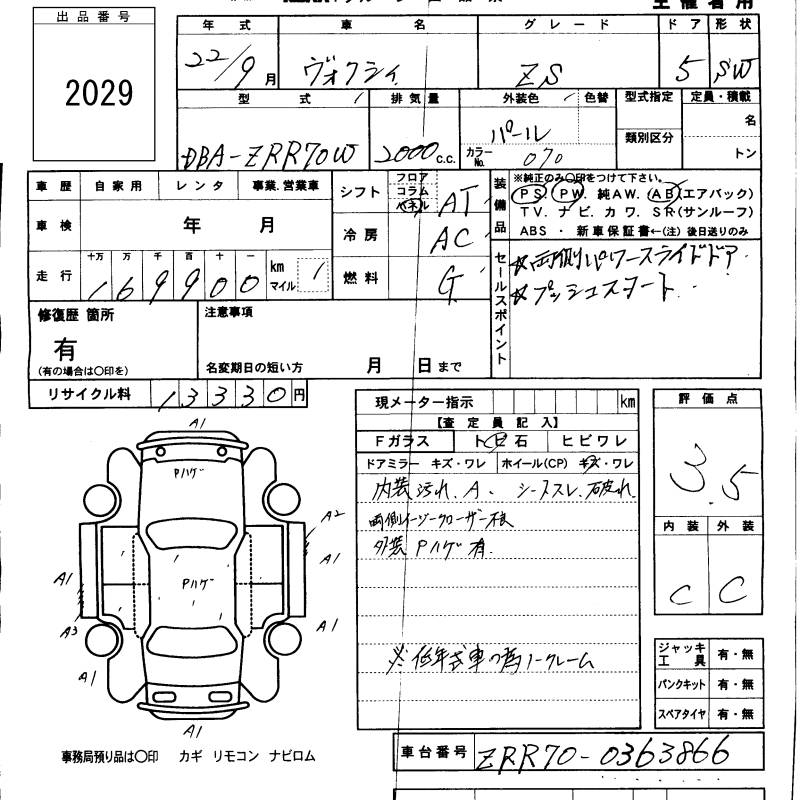 出品番号
2029
年式 車名 グレード ドア 形状
22/9月 ヴォクシィ ZS 5 SW
型式 排気量 外装色 色替 型式指定 定員・積載
DBA-ZRR70W 2000c.c. パール 類別区分 名
カラーNo. 070 トン
車歴 自家用 レンタ 事業.営業車
車検 年 月
走行 十万 万 千 百 十 一
169900 km マイル
シフト フロア コラム パネル AT
冷房 AC
燃料 G
装備品
※純正のみ○印をつけて下さい。
PS PW 純AW. AB(エアバック)
TV. ナビ. カワ. SR(サンルーフ)
ABS ・ 新車保証書←(注) 後日送りのみ
セールスポイント
☆両側パワースライドドア
☆プッシュスタート
修復歴 箇所
有
(有の場合は○印を)
注意事項
名変期日の短い方 月 日まで
リサイクル料 13330円
現メーター指示 km
【査定員記入】
Fガラス トビ石 ヒビワレ
ドアミラー キズ・ワレ ホイール(CP) キズ・ワレ
内装 汚れ. A. シートスレ. 破れ
両側イージークローザー不良
外装 Pハゲ有.
※低年式車の為ノークレーム
評価点
3.5
内装 外装
C C
ジャッキ工具 有・無
パンクキット 有・無
スペアタイヤ 有・無
A1
Pハゲ
A2
A1
A1
Pハゲ
A3
A1
A1
A1
事務局預り品は○印 カギ リモコン ナビロム
車台番号 ZRR70-0363866